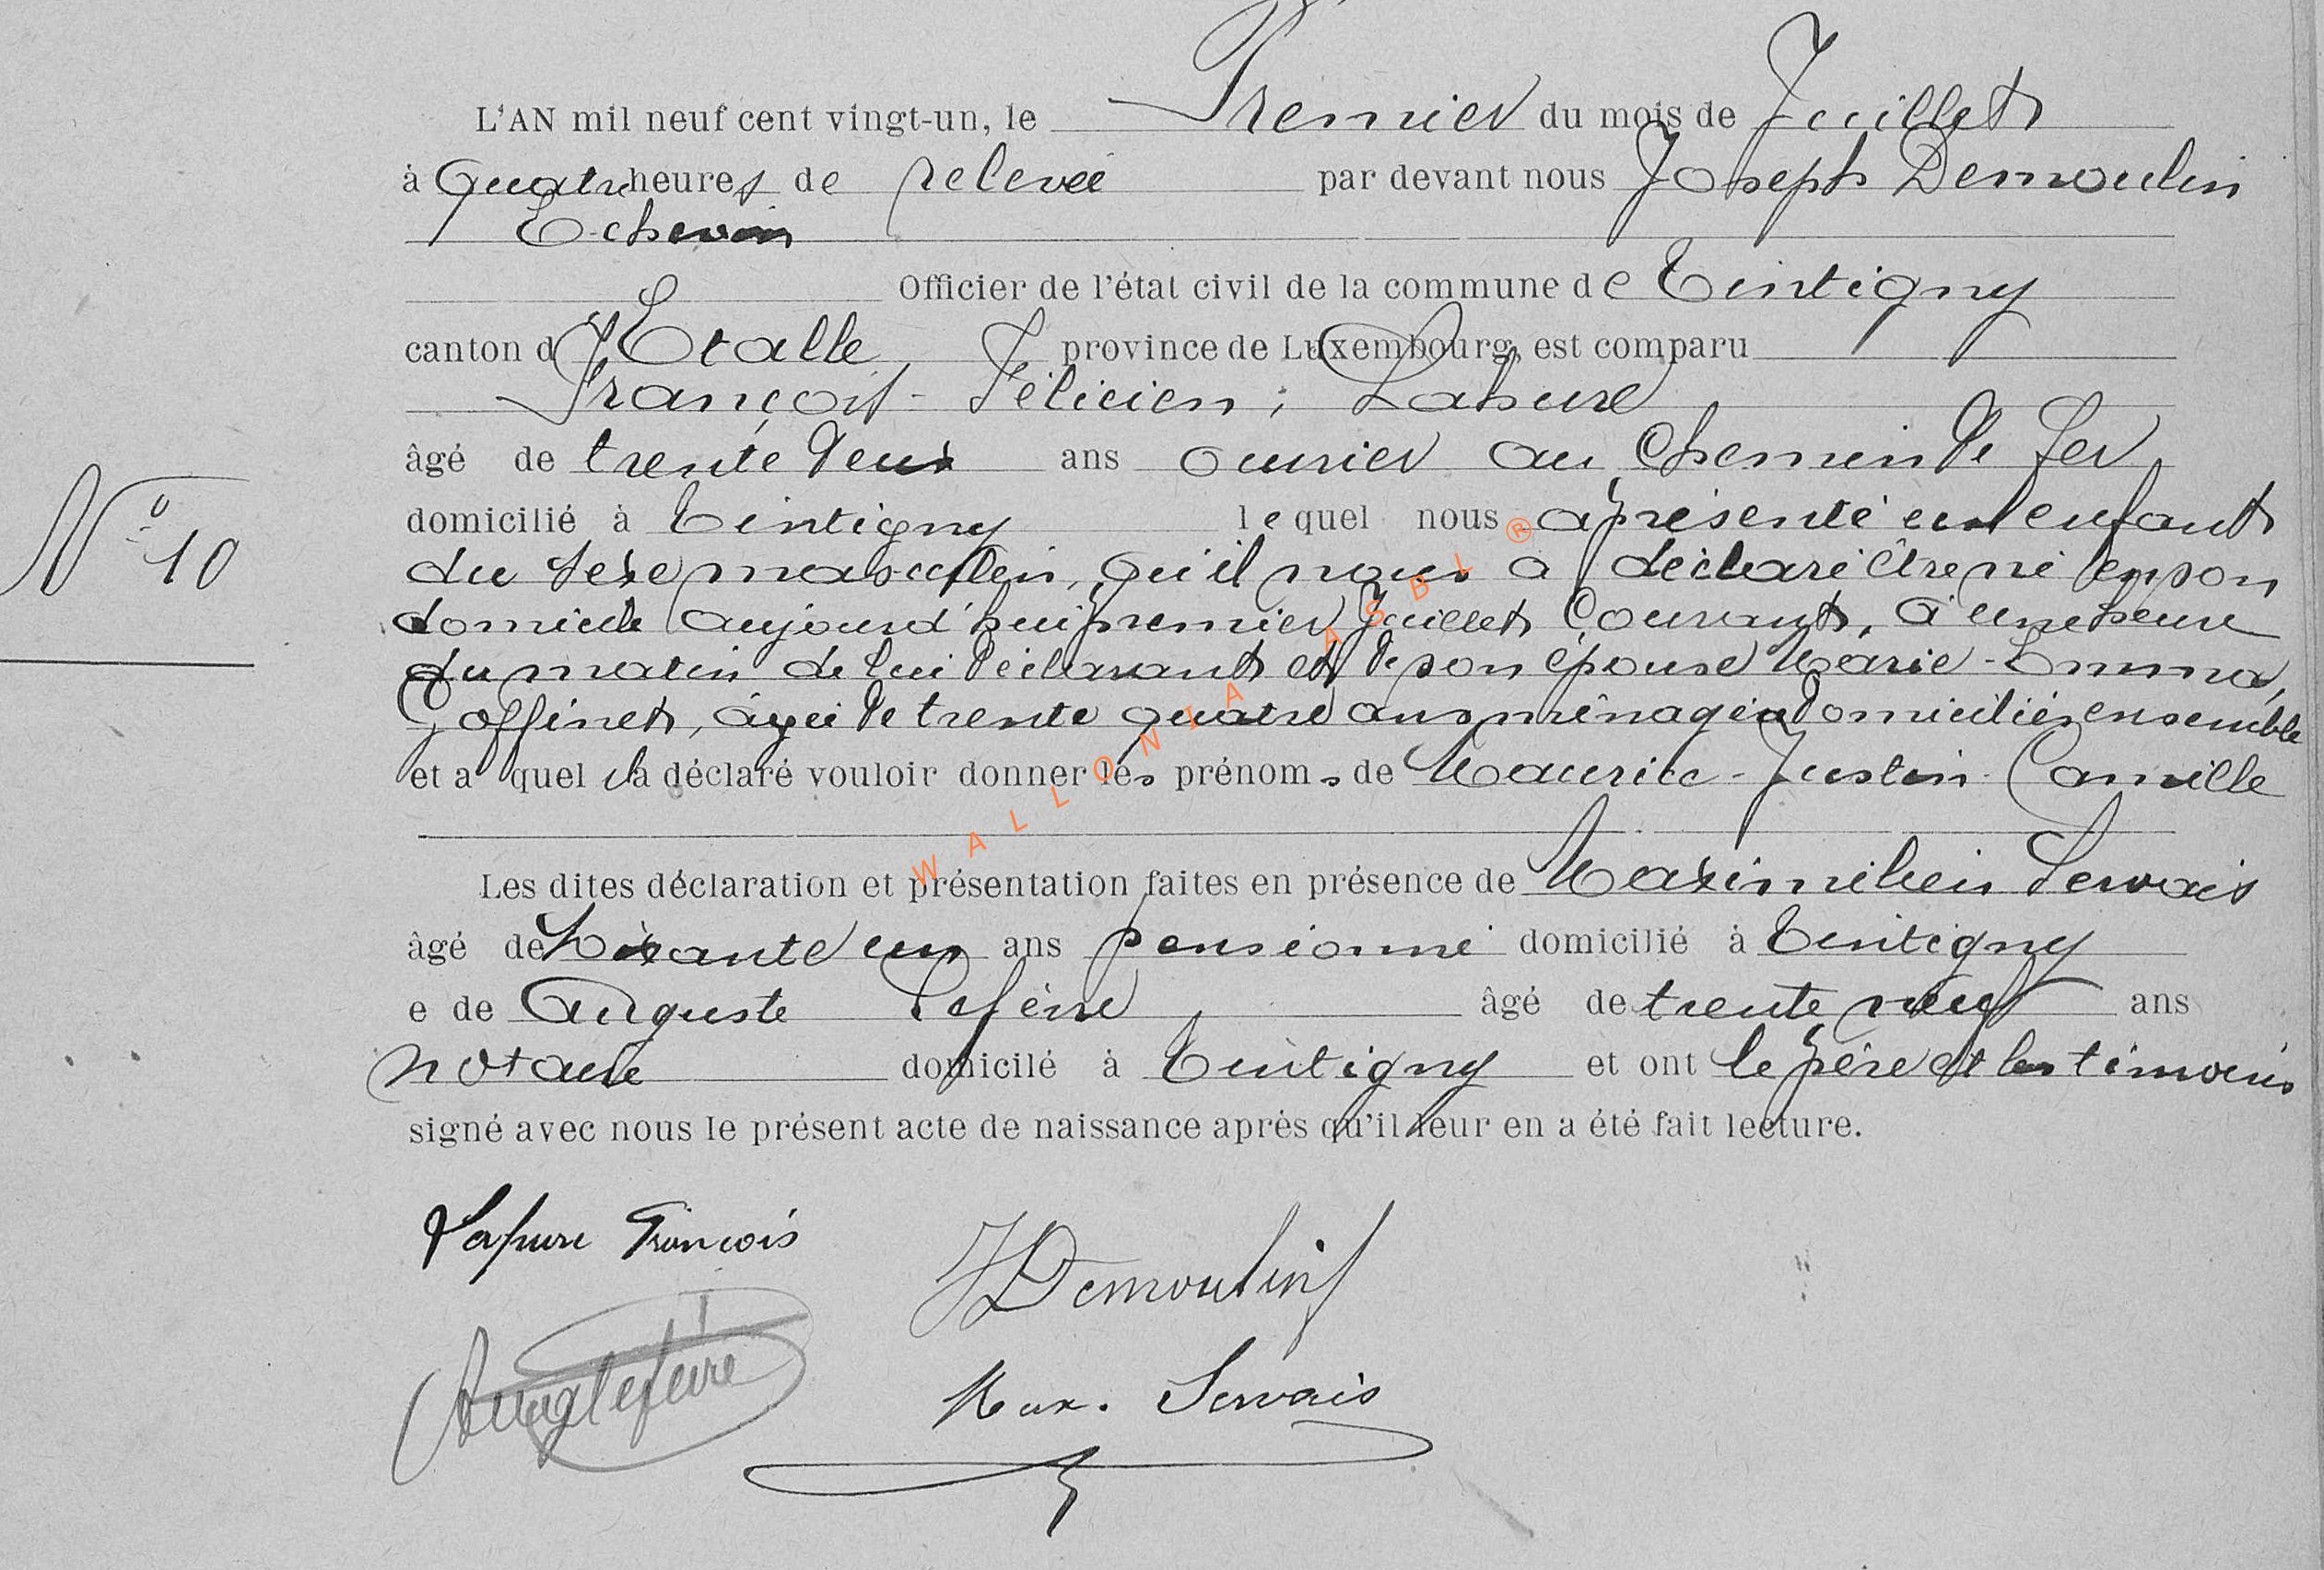 L'AN mil neuf cent vingt-un, le Premier du mois de Juillet
à quatre heures de relevée par devant nous Joseph Demoulin
Echevin
Officier de l'état civil de la commune de Tintigny
canton d'Etalle province de Luxembourg, est comparu
François-Félicien, Lahure
âgé de trente deux ans ouvrier au chemin de fer
domicilié à Tintigny lequel nous a présenté un enfant
N° 10
du sexe masculin, qu'il nous a déclaré être né en son
domicile aujourd'hui premier Juillet courant, à une heure
du matin de lui déclarant et de son épouse Marie-Emma,
Goffinet, âgée de trente quatre ans ménagère domiciliés ensemble
et a quel il a déclaré vouloir donner les prénoms de Maurice-Justin-Camille
Les dites déclaration et présentation faites en présence de Maximilien Servais
âgé de soixante un ans pensionné domicilié à Tintigny
e de Auguste Lefèvre, âgé de trente neuf ans
notaire domicilé à Tintigny et ont le père et les témoins
signé avec nous le présent acte de naissance après qu'il leur en a été fait lecture.
Lahure François
JDemoulin
Aug Lefèvre
Max. Servais
WALLONIA ASBL ®